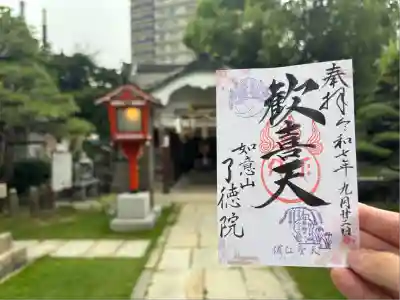 奉拝
令和七年九月廿二日
歓喜天
如意山
了徳院
浦江聖天